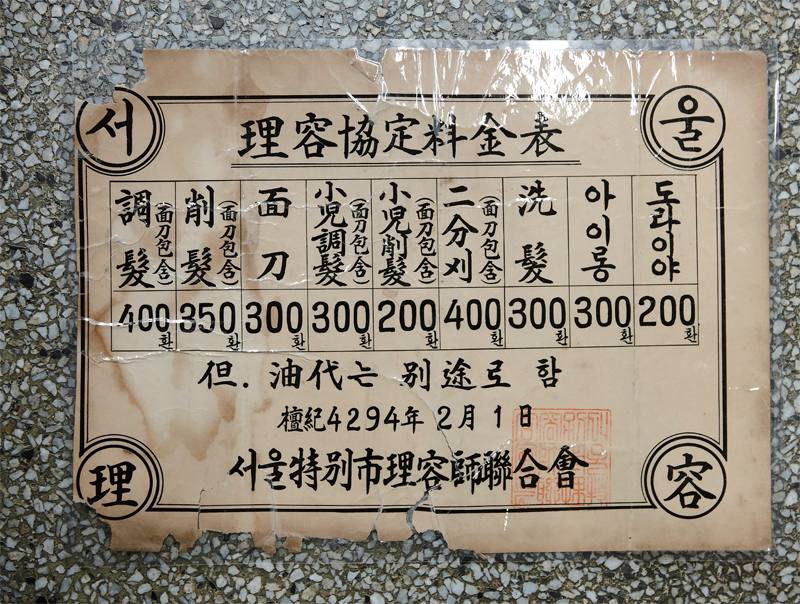 서 울
理容協定料金表
調髮(面刀包含) 400환
削髮(面刀包含) 350환
面刀 300환
小児調髮(面刀包含) 300환
小児削髮(面刀包含) 200환
二分刈(面刀包含) 400환
洗髮 300환
아이롱 300환
도라이야 200환
但. 油代는 別途로 함
檀紀4294年 2月 1日
서울特別市理容師聯合會
理 容